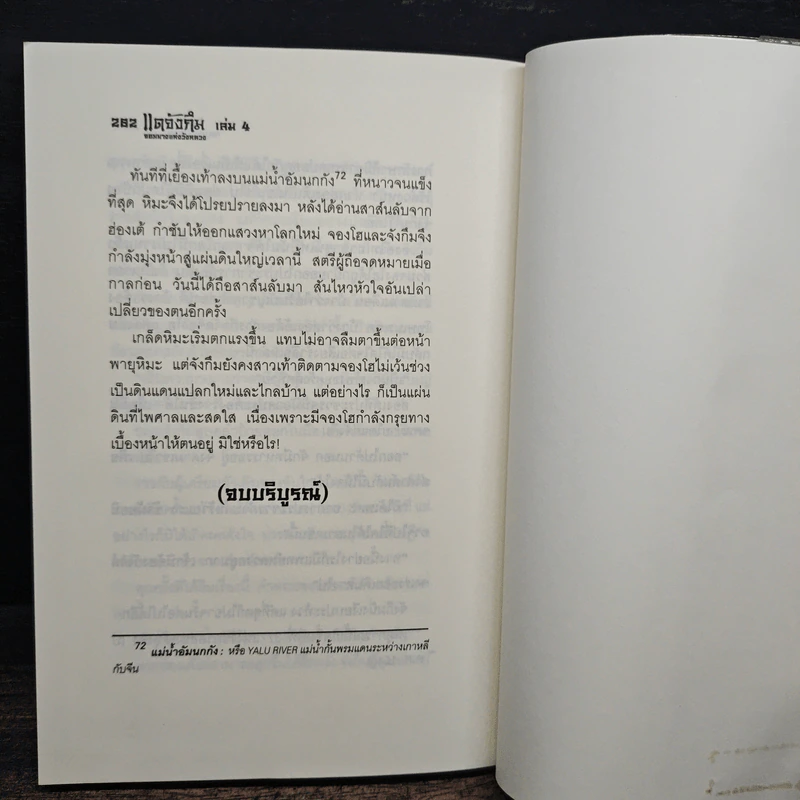 282 แดจังกึม เล่ม 4
จอมนางแห่งวังหลวง
ทันทีที่เยื้องเท้าลงบนแม่น้ำอัมนกกัง72 ที่หนาวจนแข็ง
ที่สุด หิมะจึงได้โปรยปรายลงมา หลังได้อ่านสาส์นลับจาก
ฮ่องเต้ กำชับให้ออกแสวงหาโลกใหม่ จองโฮและจังกึมจึง
กำลังมุ่งหน้าสู่แผ่นดินใหญ่เวลานี้ สตรีผู้ถือจดหมายเมื่อ
กาลก่อน วันนี้ได้ถือสาส์นลับมา สั่นไหวหัวใจอันเปล่า
เปลี่ยวของตนอีกครั้ง
เกล็ดหิมะเริ่มตกแรงขึ้น แทบไม่อาจลืมตาขึ้นต่อหน้า
พายุหิมะ แต่จังกึมยังคงสาวเท้าติดตามจองโฮไม่เว้นช่วง
เป็นดินแดนแปลกใหม่และไกลบ้าน แต่อย่างไร ก็เป็นแผ่น
ดินที่ไพศาลและสดใส เนื่องเพราะมีจองโฮกำลังกรุยทาง
เบื้องหน้าให้ตนอยู่ มิใช่หรือไร!
(จบบริบูรณ์)
72 แม่น้ำอัมนกกัง : หรือ YALU RIVER แม่น้ำกั้นพรมแดนระหว่างเกาหลี
กับจีน